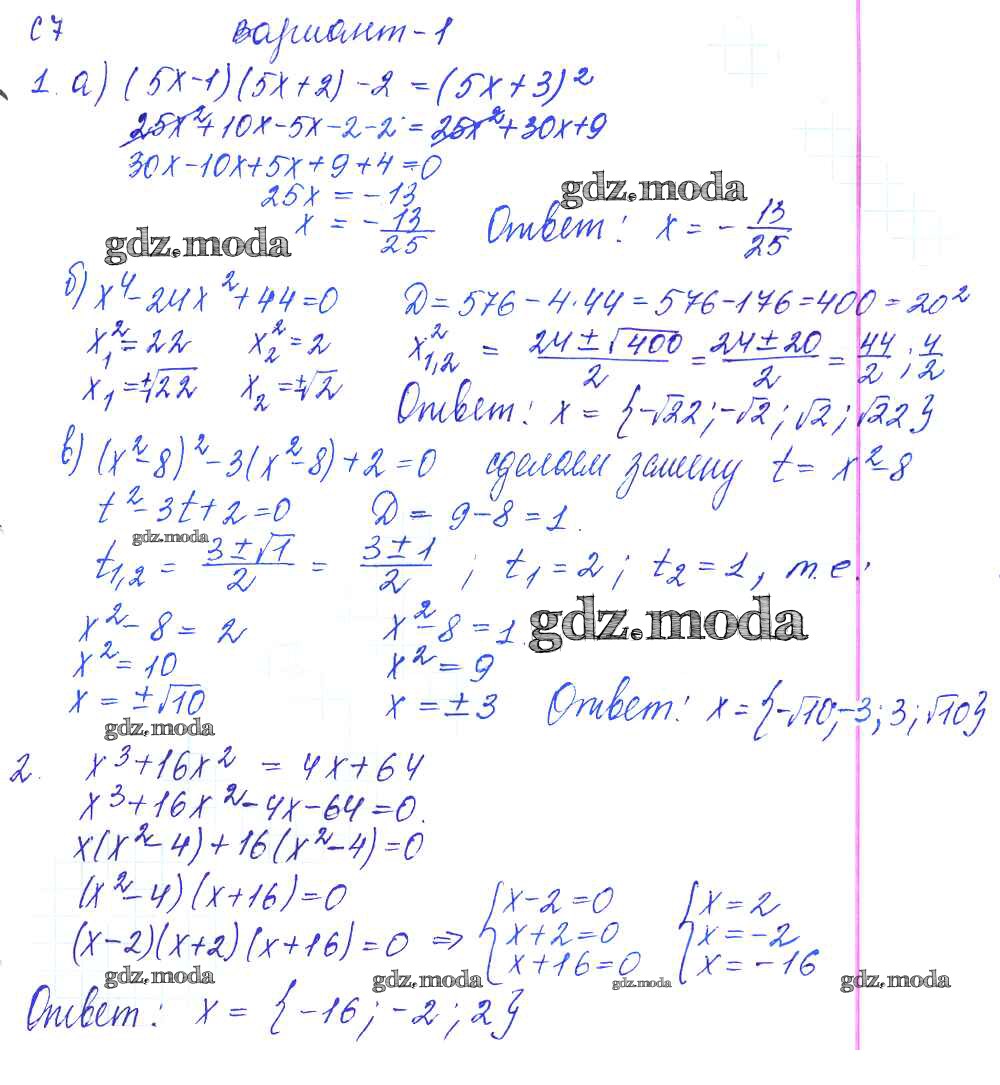 С 7 вариант-1
1. а) (5x-1)(5x+2)-2=(5x+3)²
25x²+10x-5x-2-2=25x²+30x+9
30x-10x+5x+9+4=0
25x = -13
gdz.moda
x = -13/25 Ответ: x = -13/25
gdz.moda
б) x⁴-24x²+44=0 D=576-4·44=576-176=400=20²
x₁²=22 x₂²=2 x²₁,₂ = (24±√400)/2 = (24±20)/2 = 44/2; 4/2
x₁=±√22 x₂=±√2
Ответ: x = {-√22; -√2; √2; √22}
в) (x²-8)²-3(x²-8)+2=0 сделаем замену t = x²-8
t²-3t+2=0 D = 9-8=1.
gdz.moda
t₁,₂ = (3±√1)/2 = (3±1)/2; t₁=2; t₂=1, т.е.:
x²-8 = 2 x²-8=1. gdz.moda
x²=10 x²=9
x = ±√10 x = ±3 Ответ: x={-√10;-3;3;√10}
gdz.moda
2. x³+16x² = 4x+64
x³+16x²-4x-64=0.
x(x²-4)+16(x²-4)=0
(x²-4)(x+16)=0 { x-2=0 { x=2
(x-2)(x+2)(x+16)=0 ⇒ x+2=0 x=-2
x+16=0 x=-16
gdz.moda gdz.moda gdz.moda gdz.moda
Ответ: x = {-16; -2; 2}